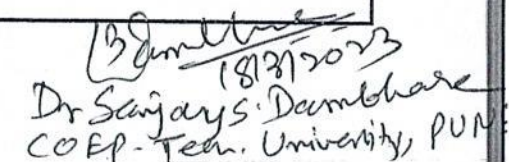 18/3/2023
Dr Sanjay S. Dambhare
COEP-Tech. University, PUNE